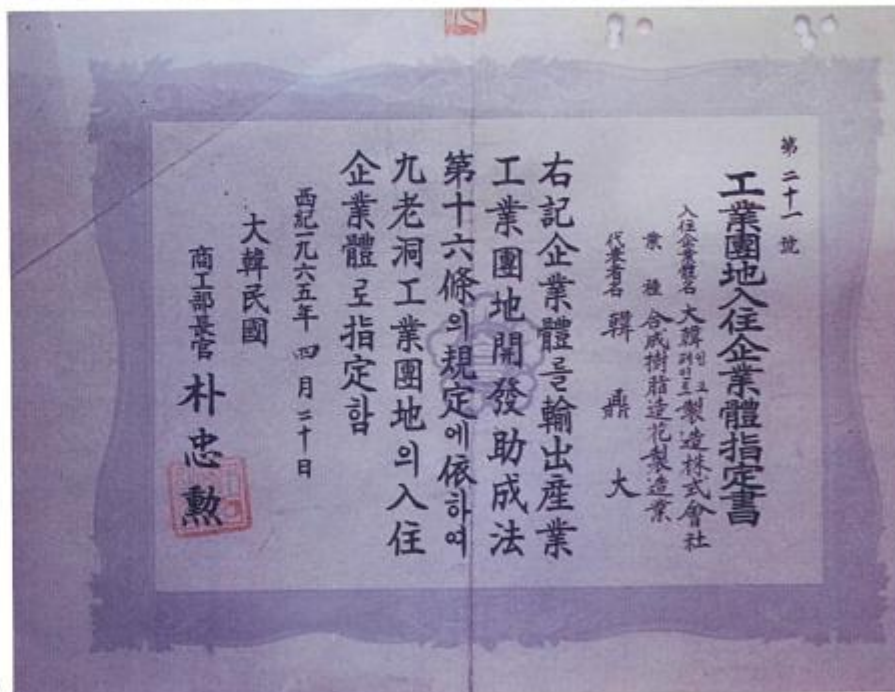 第二十一號
工業團地入住企業體指定書
入住企業體名 大韓 製造株式會社
業種 合成樹脂造花製造業
代表者名 韓鼎大
右記企業體를輸出産業
工業團地開發助成法
第十六條의規定에依하여
九老洞工業團地의入住
企業體로指定함
西紀一九六五年 四月 二十日
大韓民國
商工部長官 朴忠勲